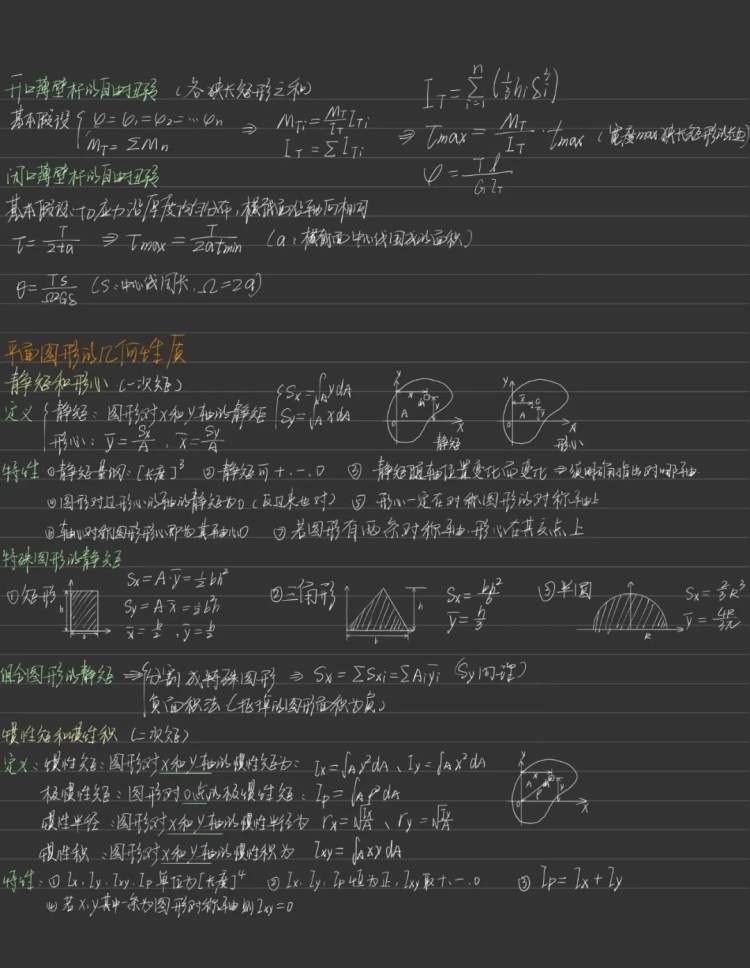 开口薄壁杆的自由扭转 (各狭长矩形之和) I_T = \sum_{i=1}^{n} (\frac{1}{3} h_i δ_i^3)
基本假设 { φ = φ_1 = φ_2 = ··· φ_n ⇒ M_{Ti} = \frac{M_T}{I_T} I_{Ti} ⇒ τ_{max} = \frac{M_T}{I_T} · t_{max} (宽度max狭长矩形的长边)
M_T = ΣM_n I_T = ΣI_{Ti} φ = \frac{Tl}{GI_T}
闭口薄壁杆的自由扭转
基本假设: 应力沿厚度均匀分布, 横截面沿轴向相同
τ = \frac{T}{2ta} ⇒ τ_{max} = \frac{T}{2at_{min}} (a: 横截面中心线围成的面积)
θ = \frac{TS}{Ω²Gδ} (S: 中心线周长, Ω = 2a)
平面图形的几何性质
静矩和形心 (一次矩)
定义 { 静矩: 图形对x和y轴的静矩 { S_x = ∫_A y dA
S_y = ∫_A x dA
形心: \bar{y} = \frac{S_x}{A}, \bar{x} = \frac{S_y}{A} 静矩 形心
特性 ①静矩量纲: [长度]³ ②静矩可+、-、0 ③静矩随轴位置变化而变化 ⇒ 须指出对哪轴
④图形对过形心的轴的静矩为0 (反过来也对) ⑤形心一定在对称图形的对称轴上
⑥轴心对称图形形心即为其轴心 ⑦若图形有两条对称轴, 形心在其交点上
特殊图形的静矩
①矩形 S_x = A\bar{y} = \frac{1}{2}bh² ②三角形 S_x = \frac{bh²}{6} ③半圆 S_x = \frac{2}{3}R³
S_y = A\bar{x} = \frac{1}{2}b²h \bar{y} = \frac{h}{3} \bar{y} = \frac{4R}{3π}
\bar{x} = \frac{b}{2}, \bar{y} = \frac{h}{2}
组合图形的静矩 ⇒ { 分割成特殊图形 ⇒ S_x = ΣS_{xi} = ΣA_i\bar{y}_i (S_y同理)
负面积法 (挖掉的图形面积为负)
惯性矩和惯性积 (二次矩)
定义: 惯性矩: 图形对x和y轴的惯性矩为: I_x = ∫_A y²dA、I_y = ∫_A x²dA
极惯性矩: 图形对O点的极惯性矩: I_p = ∫_A ρ²dA
惯性半径: 图形对x和y轴的惯性半径为 r_x = \sqrt{\frac{I_x}{A}}、r_y = \sqrt{\frac{I_y}{A}}
惯性积: 图形对x和y轴的惯性积为 I_{xy} = ∫_A xy dA
特性: ①I_x, I_y, I_{xy}, I_p 单位为[长度]⁴ ②I_x, I_y, I_p恒为正, I_{xy}取+、-、0 ③I_p = I_x + I_y
④若x,y其中一条为图形对称轴则I_{xy} = 0